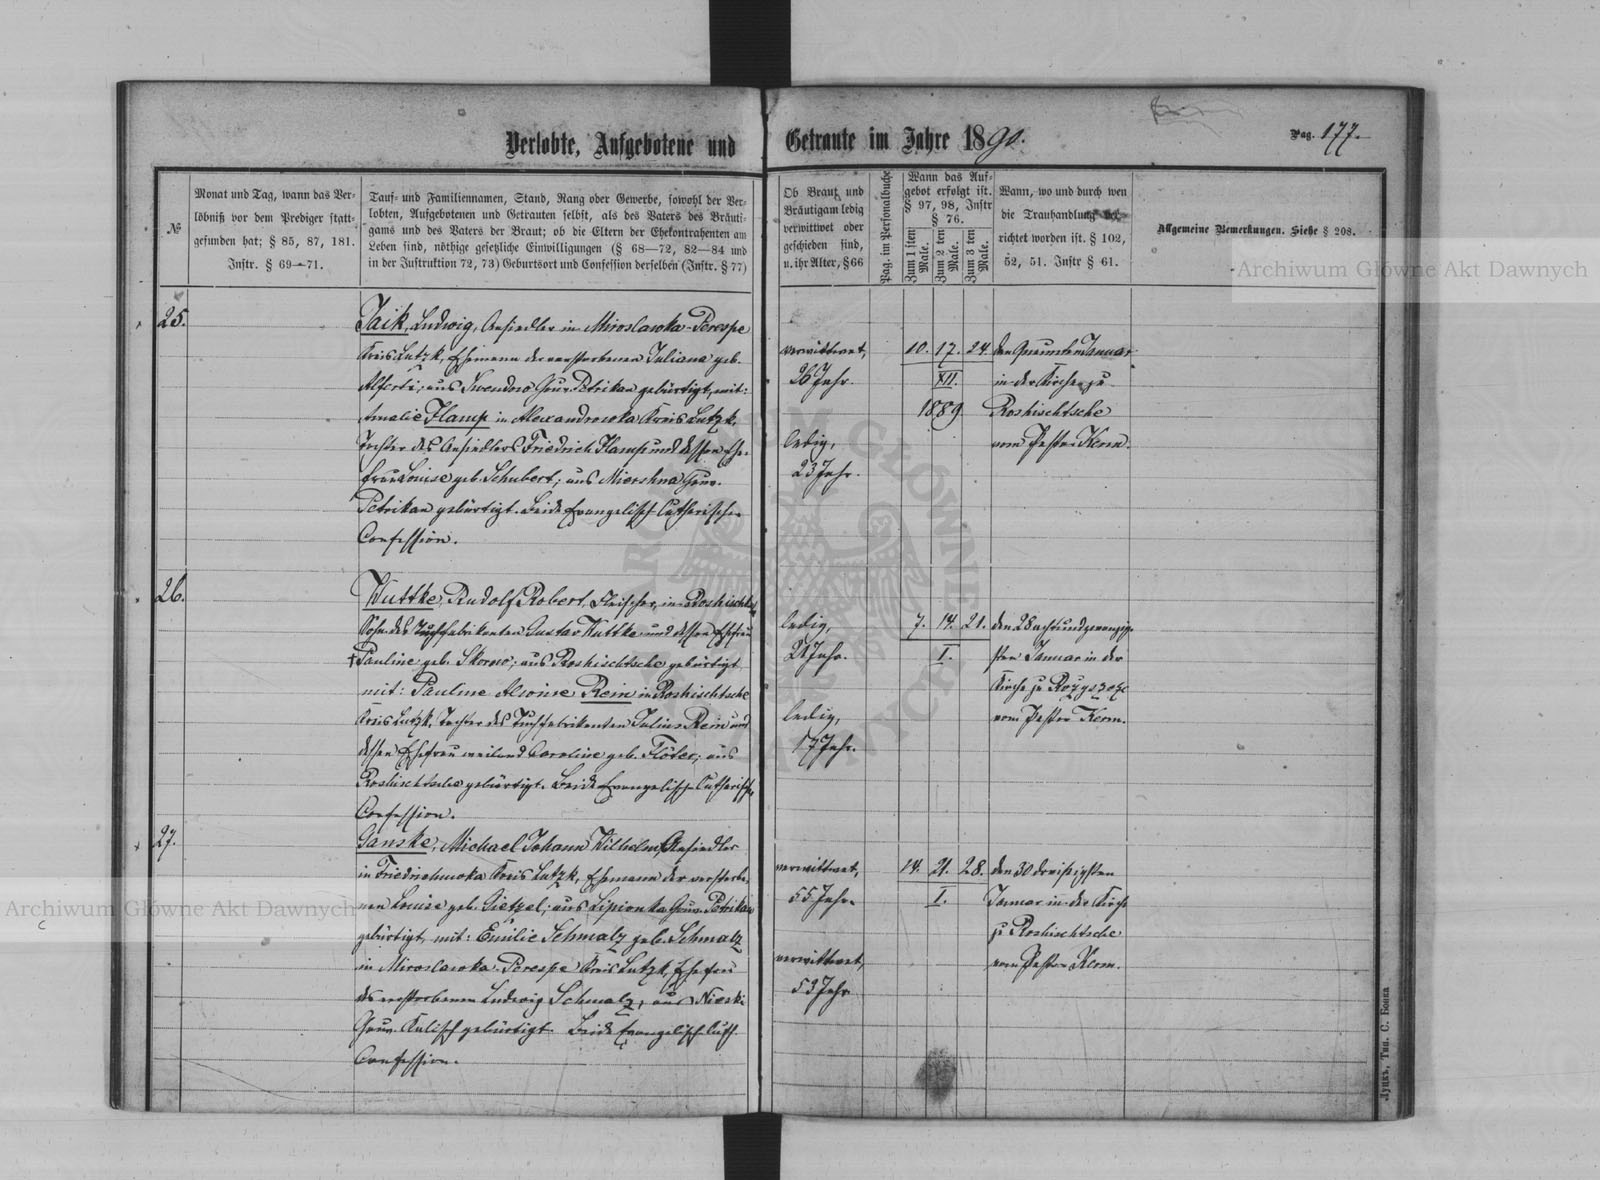 Verlobte, Aufgebotene und Getraute im Jahre 1890.
Pag. 177.
№
Monat und Tag, wann das Ver-
löbniß vor dem Prediger statt-
gefunden hat; § 85, 87, 181.
Instr. § 69—71.
Tauf- und Familiennamen, Stand, Rang oder Gewerbe, sowohl der Ver-
lobten, Aufgebotenen und Getrauten selbst, als des Vaters des Bräuti-
gams und des Vaters der Braut; ob die Eltern der Ehekontrahenten am
Leben sind, nöthige gesetzliche Einwilligungen (§ 68—72, 82—84 und
in der Instruktion 72, 73) Geburtsort und Confession derselben (Instr. § 77)
Ob Braut und
Bräutigam ledig
verwittwet oder
geschieden sind,
u. ihr Alter, § 66
Pag. im Personalbuche
Wann das Auf-
gebot erfolgt ist.
§ 97, 98, Instr
§ 76.
Zum 1 sten Male.
Zum 2 ten Male.
Zum 3 ten Male.
Wann, wo und durch wen
die Trauhandlung ver-
richtet worden ist. § 102,
52, 51. Instr § 61.
Allgemeine Bemerkungen. Siehe § 208.
25.
Jaik, Ludwig, Ansiedler in Miroslawka-Perespe
Kreis Lutzk, Ehemann der verstorbenen Juliana geb.
gebürtigt, mit:
Amalie Flamp in Alexandrowka Kreis Lutzk,
Tochter des Ansiedlers Friedrich Flamp und dessen Ehe-
frau Louise geb. Schubert; aus Miershna Gouv.
Petrikau gebürtigt. Beide Evangelisch Lutherischer
Confession.
verwittwet,
26 Jahr.
ledig,
23 Jahr.
10. 17. 24.
XII.
1889
den Januar
in der Kirche zu
Roshischtsche
vom Pastor Kerm.
26.
Wuttke, Rudolf Robert, Fleischer, in Roshischtsche
Sohn des Tuchfabrikanten Gustav Wuttke und dessen Ehefrau
† Pauline geb. Skorno; aus Roshischtsche gebürtigt
mit: Pauline Alwine Rein in Roshischtsche
Kreis Lutzk, Tochter des Tuchfabrikanten Julius Rein und
dessen Ehefrau weiland Caroline geb. Flöter; aus
Roshischtsche gebürtigt. Beide Evangelisch Lutherisch.
Confession.
ledig,
21 Jahr.
ledig,
17 Jahr.
7. 14. 21.
I.
den 28 achtundzwanzig-
sten Januar in der
Kirche zu Rozyszcze
vom Pastor Kerm.
27.
Ganske, Michael Johann Wilhelm, Ansiedler
in Kreis Lutzk, Ehemann der verstorbe-
nen Louise geb. Gietzel; aus Lipionka Gouv. Petrikau
gebürtigt, mit: Emilie Schmalz geb. Schmalz
in Miroslawka-Perespe Kreis Lutzk, Ehefrau
des verstorbenen Ludwig Schmalz, aus
Gouv. Kalisch gebürtigt. Beide Evangelisch Luth.
Confession.
verwittwet,
55 Jahr.
verwittwet,
53 Jahr
14. 21. 28.
I.
den 30 dreißigsten
Januar in der Kirche
zu Roshischtsche
vom Pastor Kerm.
Луцкъ, Тип. С. Бонка
Archiwum Główne Akt Dawnych
Archiwum Główne Akt Dawnych